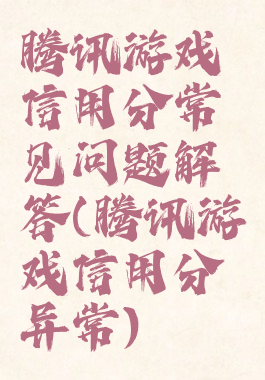 腾讯游戏
信用分常
见问题解
答(腾讯游
戏信用分
异常)